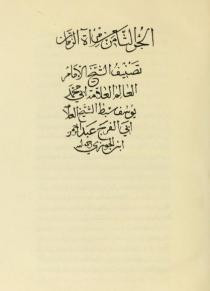 الجزء الثامن من مرآة الزمان
تصنيف الشيخ الإمام
العالم العلامة أبي محمد
يوسف سبط الشيخ
أبي الفرج عبد الرحمن
ابن الجوزي